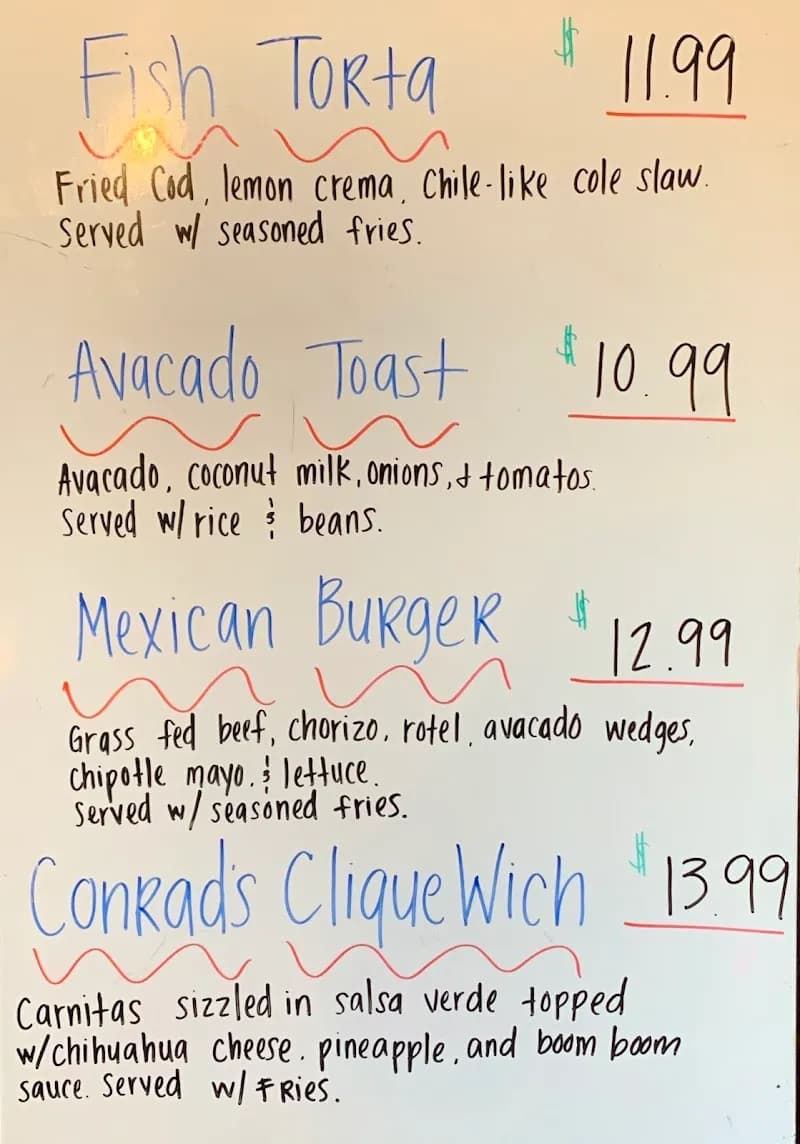 Fish Torta $ 11.99
Fried Cod, lemon crema, Chile-like cole slaw.
Served w/ seasoned fries.
Avacado Toast $ 10.99
Avacado, coconut milk, onions, & tomatos.
Served w/ rice & beans.
Mexican Burger $ 12.99
Grass fed beef, chorizo, rotel, avacado wedges,
chipotle mayo, & lettuce.
Served w/ seasoned fries.
Conrad's CliqueWich $ 13.99
Carnitas sizzled in salsa verde topped
w/chihuahua cheese, pineapple, and boom boom
sauce. Served w/ Fries.